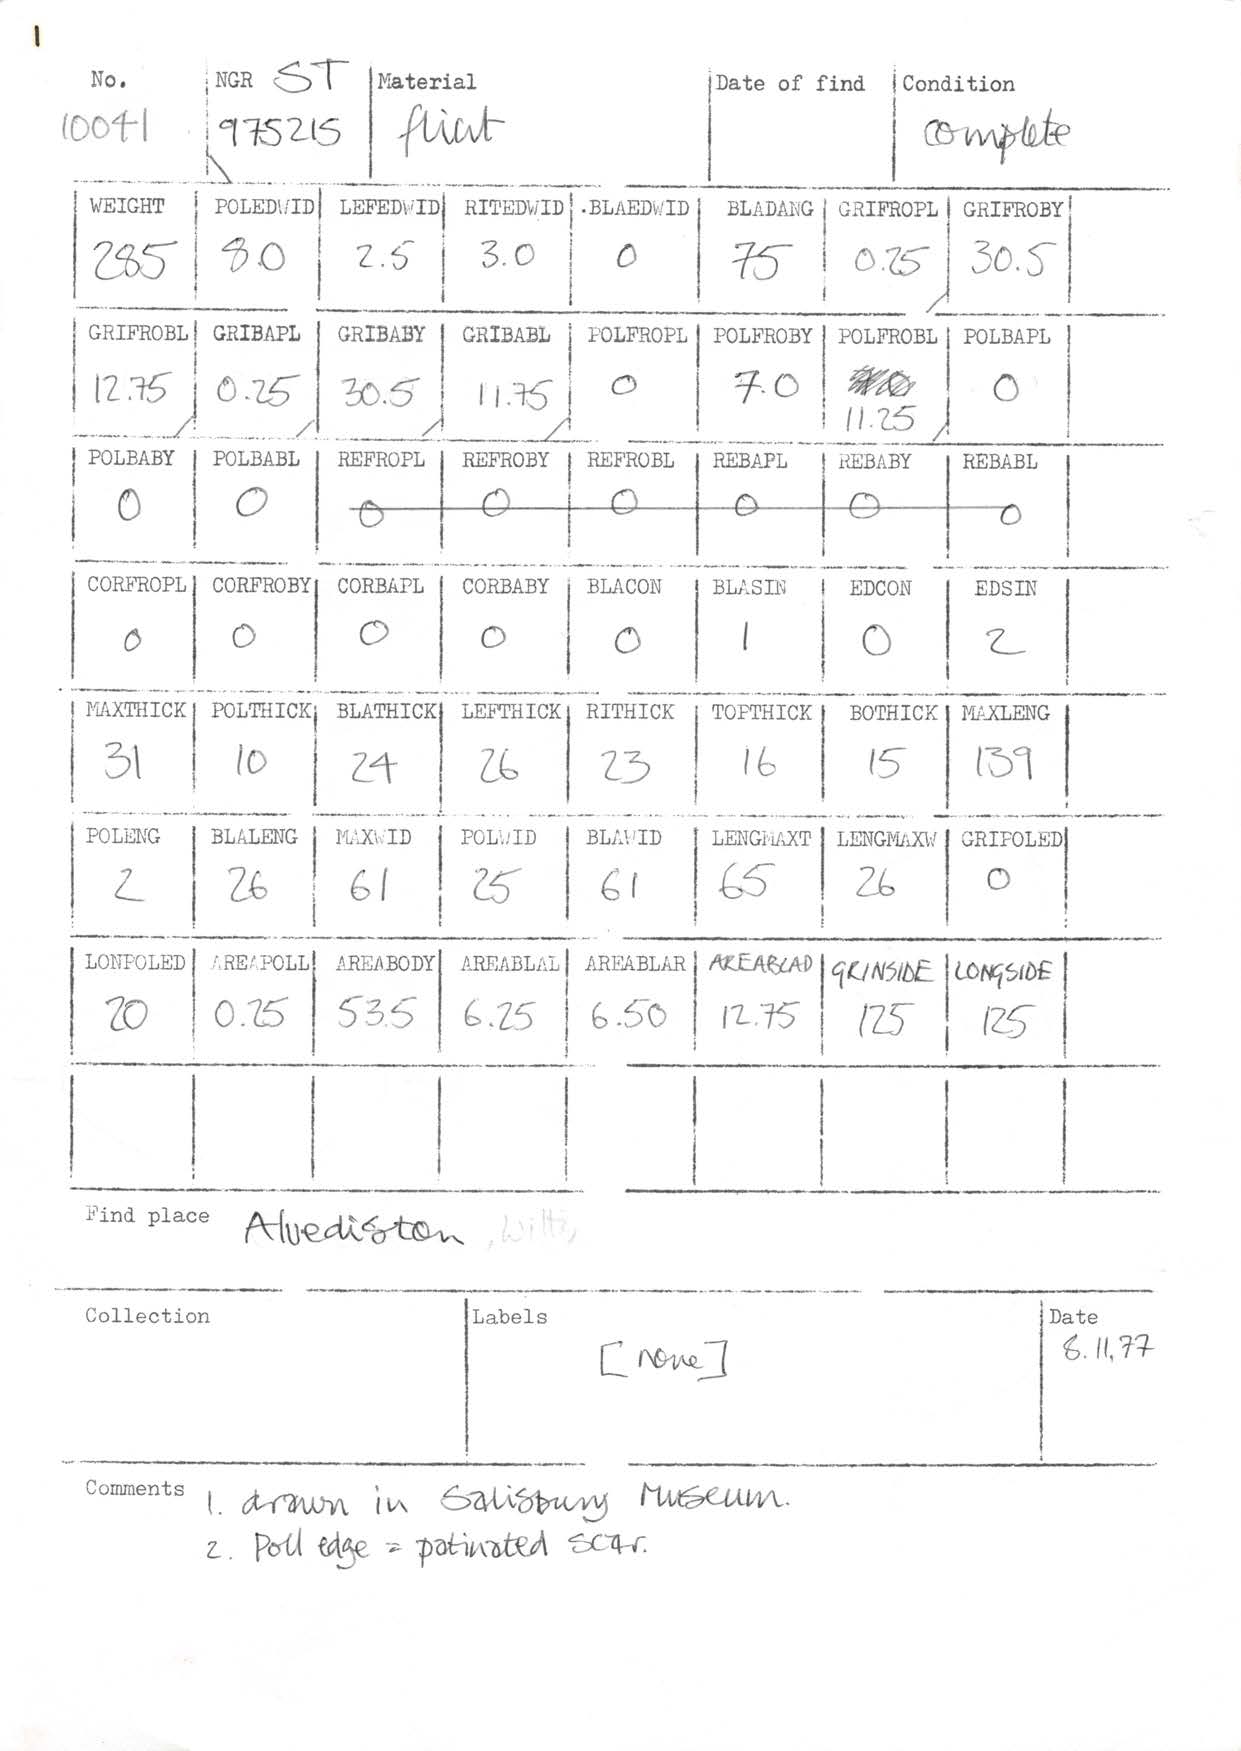 1
No. NGR ST Material Date of find Condition
10041 975215 flint complete
WEIGHT POLEDWID LEFEDWID RITEDWID .BLAEDWID BLADANG GRIFROPL GRIFROBY
285 8.0 2.5 3.0 0 75 0.25 30.5
GRIFROBL GRIBAPL GRIBABY GRIBABL POLFROPL POLFROBY POLFROBL POLBAPL
12.75 0.25 30.5 11.75 0 7.0 11.25 0
POLBABY POLBABL REFROPL REFROBY REFROBL REBAPL REBABY REBABL
0 0 0 0 0 0 0 0
CORFROPL CORFROBY CORBAPL CORBABY BLACON BLASIN EDCON EDSIN
0 0 0 0 0 1 0 2
MAXTHICK POLTHICK BLATHICK LEFTHICK RITHICK TOPTHICK BOTHICK MAXLENG
31 10 24 26 23 16 15 139
POLENG BLALENG MAXWID POLWID BLAWID LENGMAXT LENGMAXW GRIPOLED
2 26 61 25 61 65 26 0
LONPOLED AREAPOLL AREABODY AREABLAL AREABLAR AREABLAD GRINSIDE LONGSIDE
20 0.25 53.5 6.25 6.50 12.75 125 125
Find place Alvediston, Wilts,
Collection Labels Date
[none] 8.11.77
Comments 1. drawn in Salisbury Museum.
2. Poll edge = patinated scar.